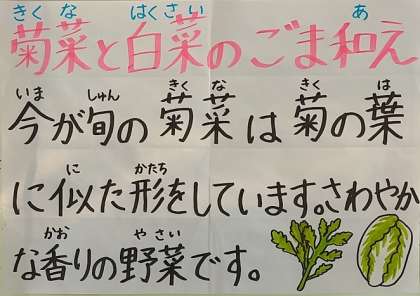 きくな はくさい あ
菊菜と白菜のごま和え
いま しゅん きく な きく は
今が旬の菊菜は菊の葉
に かたち
に似た形をしています。さわやか
かお やさい
な香りの野菜です。